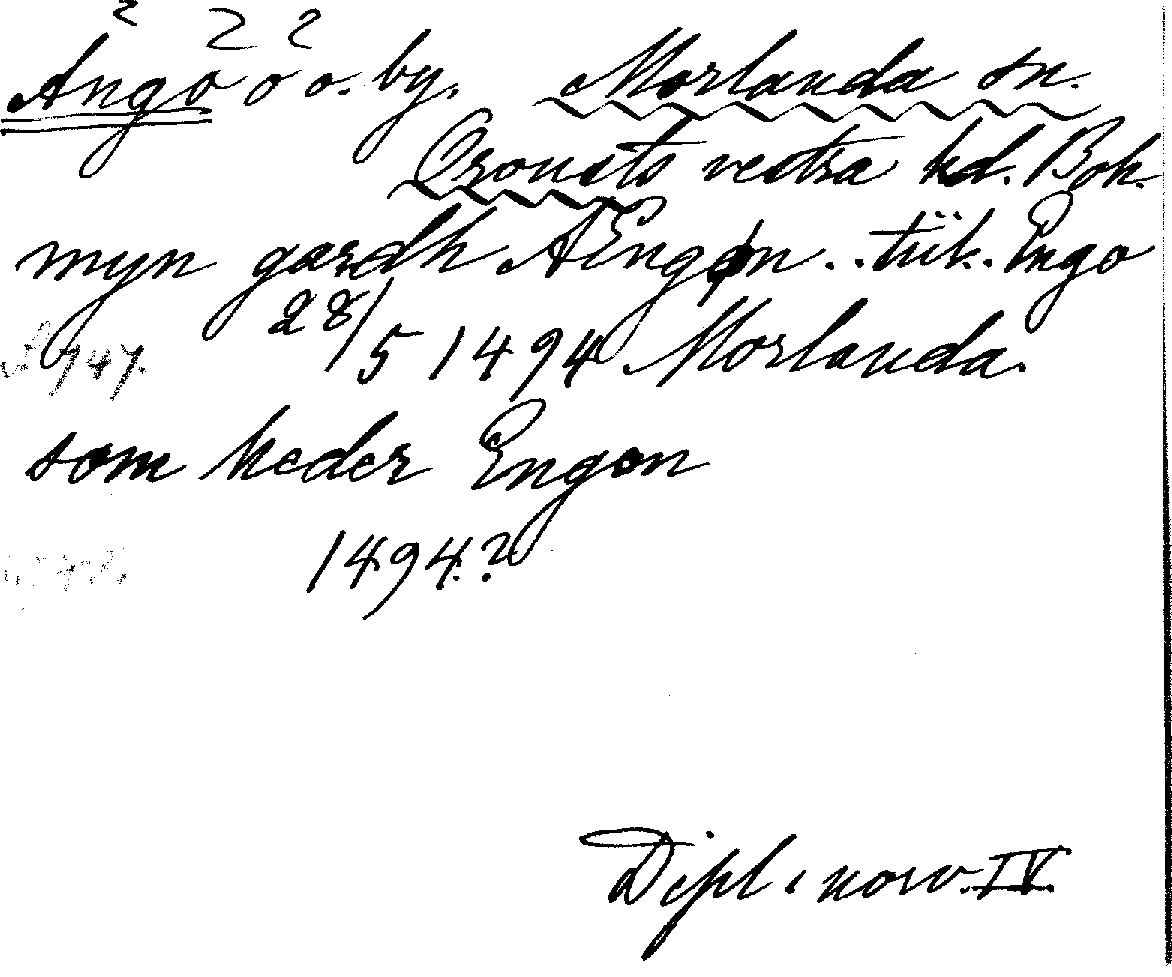 2 2 2
Ango o o. by. Morlanda sn.
Orousts vestra hd. Boh.
myn gardh AEngøn . . tiik. Engo
28/5 1494 Morlanda.
747.
som heder Engon
1494?
Dipl. norv. IV.